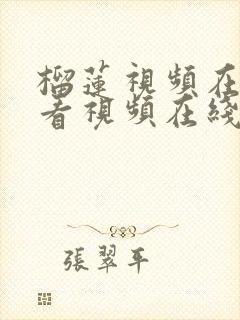 榴蓮視頻在
看視頻在綫
張翠平